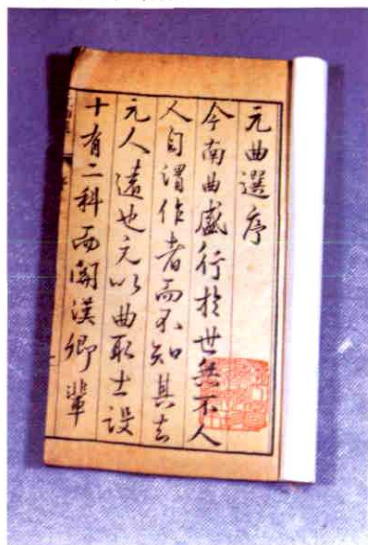 元曲選序
今南曲盛行於世無不人
人自謂作者而不知其去
元人遠也元以曲取士設
十有二科而關漢卿輩